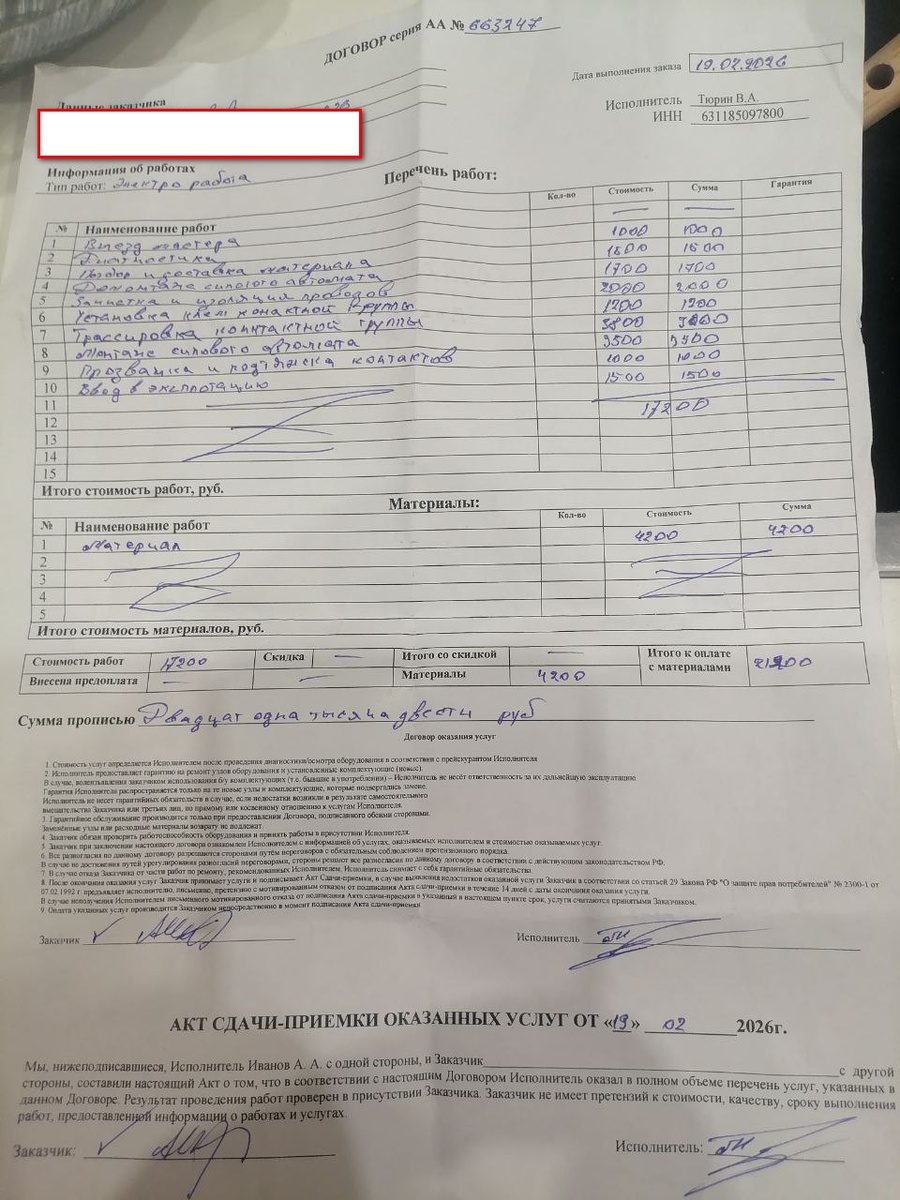 ДОГОВОР серия АА № 663247
Дата выполнения заказа 19.02.2026
Данные заказчика
Исполнитель Тюрин В.А.
ИНН 631185097800
Информация об работах
Тип работ: Электро работа
Перечень работ:
№ Наименование работ Кол-во Стоимость Сумма Гарантия
1 Выезд мастера — —
2 Диагностика 1000 1000
3 Подбор и доставка материала 1500 1500
4 Демонтаж силового автомата 1700 1700
5 Зачистка и изоляция проводов 2000 2000
6 Установка клем контактной группы 1200 1200
7 Трассировка контактной группы 3800
8 Монтаж силового автомата 3500 3500
9 Прозвонка и подтяжка контактов 1000 1000
10 Ввод в эксплотацию 1500 1500
11 17200
12
13
14
15
Итого стоимость работ, руб.
Материалы:
№ Наименование работ Кол-во Стоимость Сумма
1 Материал 4200 4200
2
3
4
5
Итого стоимость материалов, руб.
Стоимость работ 17200 Скидка — Итого со скидкой — Итого к оплате с материалами
Внесена предоплата — — Материалы 4200
Сумма прописью Двадцат одна тысяча двести руб
Договор оказания услуг
1. Стоимость услуг определяется Исполнителем после проведения диагностики/осмотра оборудования в соответствии с прейскурантом Исполнителя
2. Исполнитель предоставляет гарантию на ремонт узлов оборудования и установленные комплектующие (новые).
В случае, волеизъявления заказчиком использования б/у комплектующих (т.е. бывшие в употреблении) – Исполнитель не несёт ответственность за их дальнейшую эксплуатацию
Гарантия Исполнителя распространяется только на те новые узлы и комплектующие, которые подвергались замене.
Исполнитель не несет гарантийных обязательств в случае, если недостатки возникли в результате самостоятельного
вмешательства Заказчика или третьих лиц, по прямому или косвенному отношению к услугам Исполнителя.
3. Гарантийное обслуживание производится только при предоставлении Договора, подписанного обеими сторонами.
Заменённые узлы или расходные материалы возврату не подлежат.
4. Заказчик обязан проверить работоспособность оборудования и принять работы в присутствии Исполнителя.
5. Заказчик при заключении настоящего договора ознакомлен Исполнителем с информацией об услугах, оказываемых исполнителем и стоимостью оказываемых услуг.
6. Все разногласия по данному договору разрешаются сторонами путём переговоров с обязательным соблюдением претензионного порядка.
В случае не достижения путей урегулирования разногласий переговорами, стороны решают все разногласия по данному договору в соответствии с действующим законодательством РФ.
7. В случае отказа Заказчика от части работ по ремонту, рекомендованных Исполнителем, Исполнитель снимает с себя гарантийные обязательства.
8. После окончания оказания услуг Заказчик принимает услуги и подписывает Акт Сдачи-приемки, в случае выявления недостатков оказанной услуги Заказчик в соответствии со статьей 29 Закона РФ "О защите прав потребителей" № 2300-1 от
07.02.1992 г. предъявляет исполнителю, письменно, претензию с мотивированным отказом от подписания Акта сдачи-приемки в течение 14 дней с даты окончания оказания услуги.
В случае неполучения Исполнителем письменного мотивированного отказа от подписания Акта сдачи-приемки в указанный в настоящем пункте срок, услуги считаются принятыми Заказчиком.
9. Оплата указанных услуг производится Заказчиком непосредственно в момент подписания Акта сдачи-приемки
Заказчик Исполнитель
АКТ СДАЧИ-ПРИЕМКИ ОКАЗАННЫХ УСЛУГ ОТ «19» 02 2026г.
Мы, нижеподписавшиеся, Исполнитель Иванов А. А. с одной стороны, и Заказчик с другой
стороны, составили настоящий Акт о том, что в соответствии с настоящим Договором Исполнитель оказал в полном объеме перечень услуг, указанных в
данном Договоре. Результат проведения работ проверен в присутствии Заказчика. Заказчик не имеет претензий к стоимости, качеству, сроку выполнения
работ, предоставленной информации о работах и услугах.
Заказчик: Исполнитель: